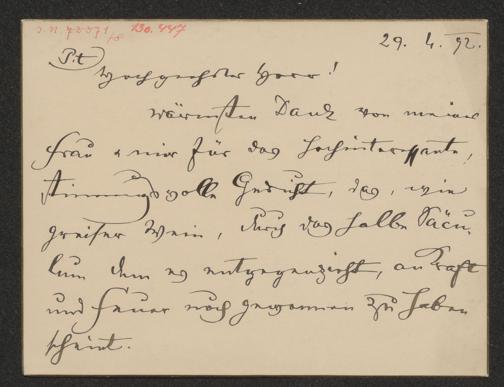 I.N. 70071 130.447
29. 4. 92.
P.t
Hochgeehrter Herr!
Wärmsten Dank von meiner
Frau & mir für das hochinteressante,
stimmungsvolle Gedicht, das, wie
greiser Wein, durch das halbe Säcu-
lum dem es entgegenzieht, an Kraft
und Feuer noch gewonnen zu haben
scheint.